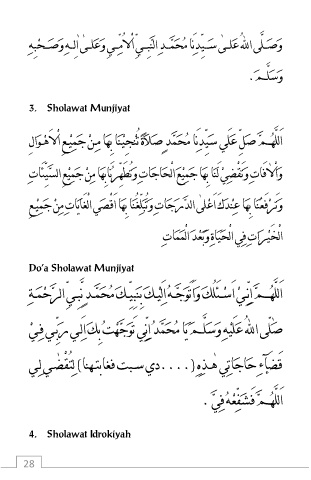 وَصَلَّى اللهُ عَلَى سَيِّدِنَا مُحَمَّدٍ النَّبِيِّ الْأُمِّيِّ وَعَلَى اٰلِهِ وَصَحْبِهِ
وَسَلَّمَ .
3. Sholawat Munjiyat
اَللّٰهُمَّ صَلِّ عَلَى سَيِّدِنَا مُحَمَّدٍ صَلَاةً تُنْجِيْنَا بِهَا مِنْ جَمِيْعِ اْلاَهْوَالِ
وَاْلاٰفَاتِ وَتَقْضِيْ لَنَا بِهَا جَمِيْعَ الْحَاجَاتِ وَتُطَهِّرُنَا بِهَا مِنْ جَمِيْعِ السَّيِّئَاتِ
وَتَرْفَعُنَا بِهَا عِنْدَكَ اَعْلَى الدَّرَجَاتِ وَتُبَلِّغُنَا بِهَا اَقْصَى الْغَايَاتِ مِنْ جَمِيْعِ
الْخَيْرَاتِ فِي الْحَيَاةِ وَبَعْدَ الْمَمَاتِ
Do’a Sholawat Munjiyat
اَللّٰهُمَّ اِنِّيْ اَسْئَلُكَ وَاَتَوَجَّهُ اِلَيْكَ بِنَبِيِّكَ مُحَمَّدٍ نَبِيِّ الرَّحْمَةِ
صَلَّى اللهُ عَلَيْهِ وَسَلَّمَ يَا مُحَمَّدُ اِنِّيْ تَوَجَّهْتُ بِكَ اِلَى رَبِّي فِيْ
قَضَاءِ حَاجَاتِي هٰذِهِ (....دي سبت فغابنتهنا) لِتُقْضٰى لِي
اَللّٰهُمَّ فَشَفِّعْهُ فِيَّ .
4. Sholawat Idrokiyah
28